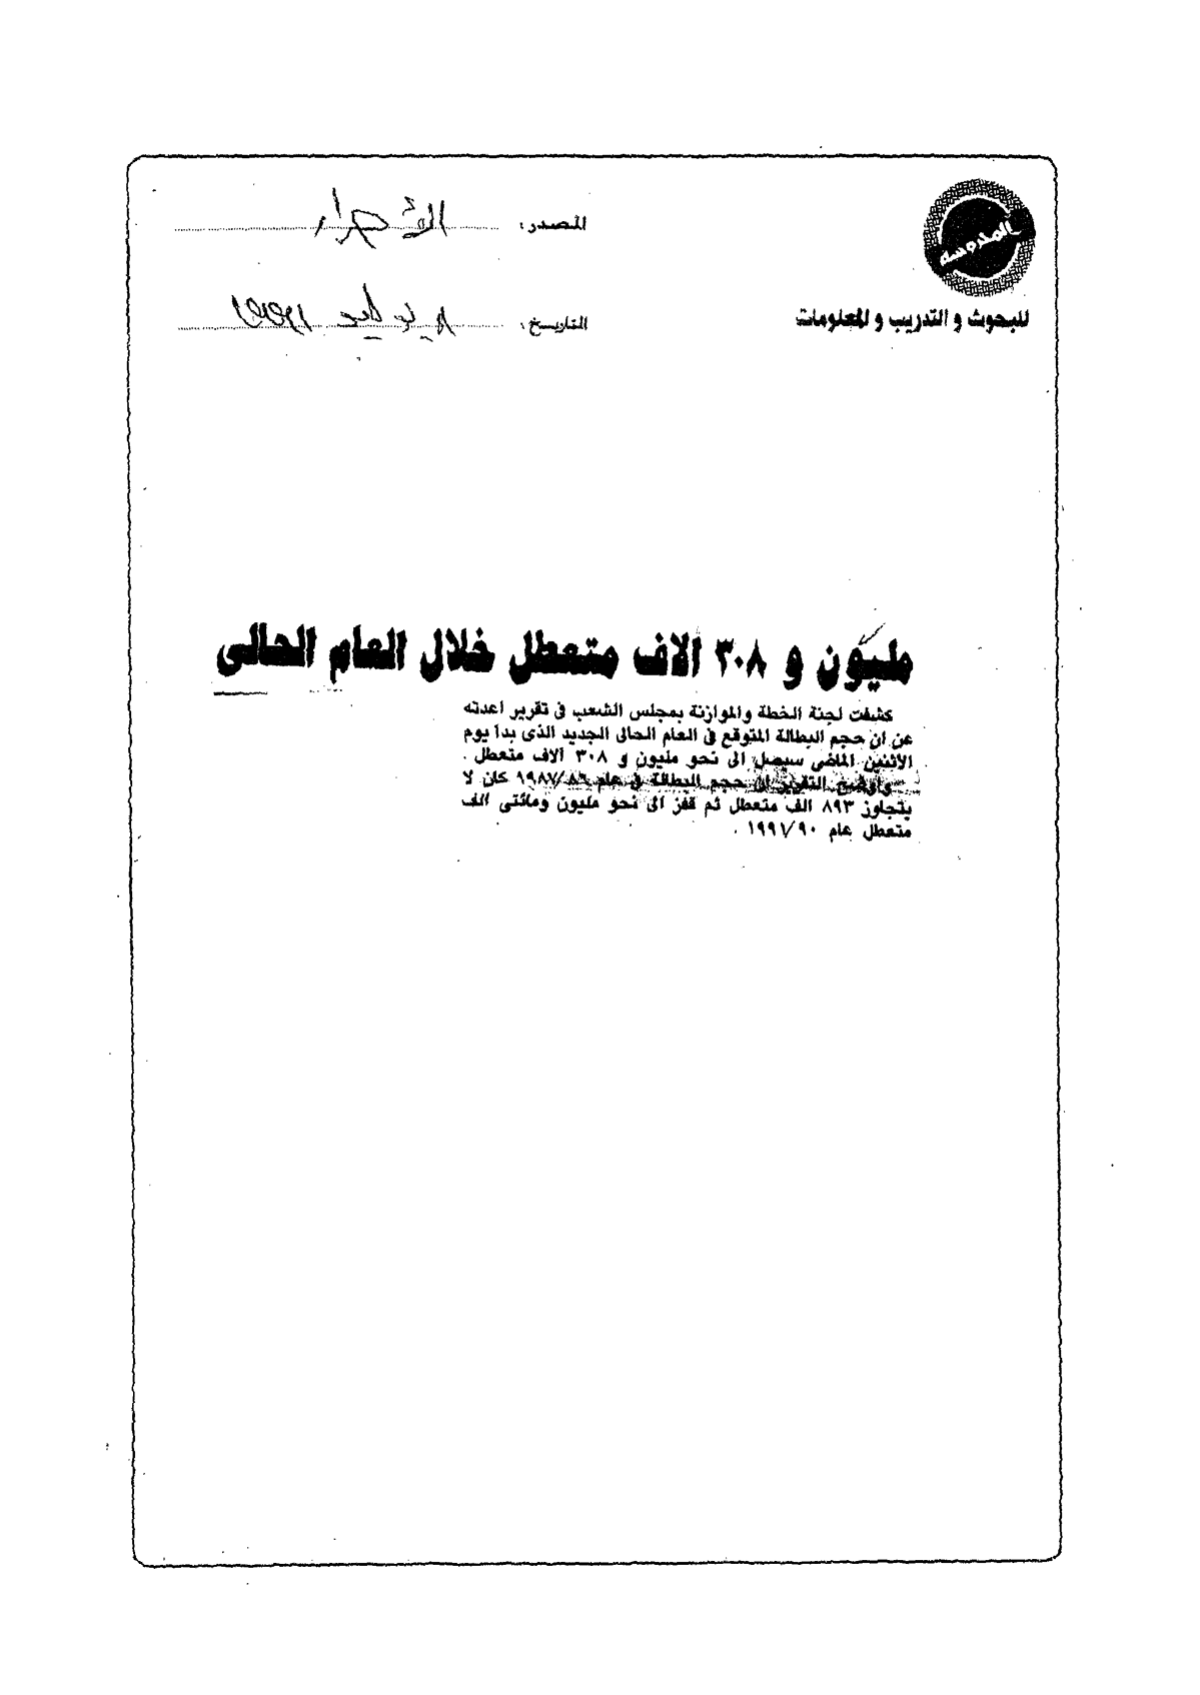 المدروسه
للبحوث و التدريب و المعلومات
المصدر: الأحرار
التاريخ: يوليو ١٩٩١
مليون و ٣٠٨ آلاف متعطل خلال العام الحالى
كشفت لجنة الخطة والموازنة بمجلس الشعب فى تقرير اعدته
عن ان حجم البطالة المتوقع فى العام الحالى الجديد الذى بدأ يوم
الاثنين الماضى سيصل الى نحو مليون و ٣٠٨ آلاف متعطل .
واوضح التقرير ان حجم البطالة فى عام ١٩٨٧/٨٦ كان لا
يتجاوز ٨٩٣ الف متعطل ثم قفز الى نحو مليون ومائتى الف
متعطل عام ١٩٩١/٩٠ .